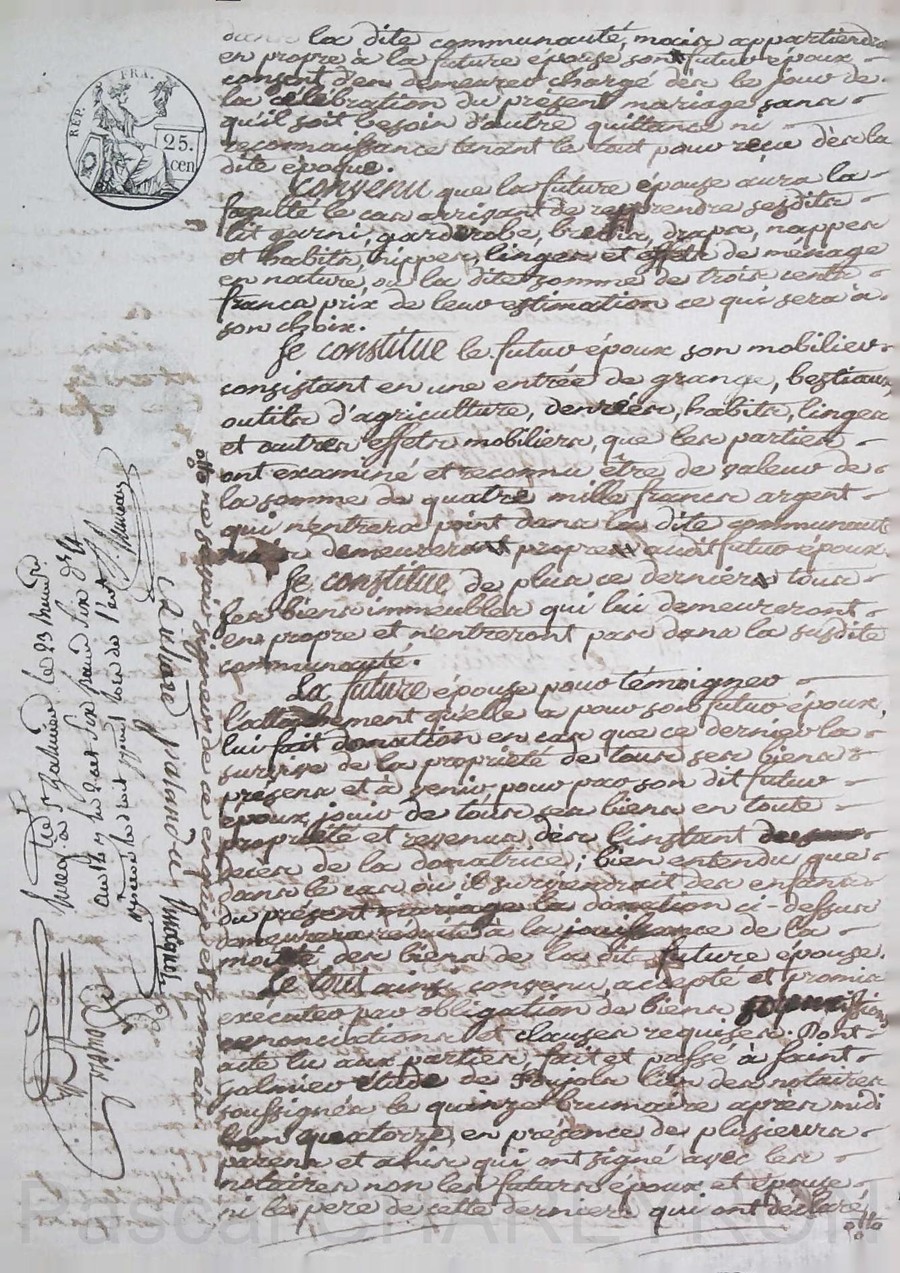 REP. FRA.
25.
cen
dans la dite communauté, mais appartiendra
en propre à la future épouse son futur époux
consent d'en demeurer chargé dès le jour de
la célébration du présent mariage sans
qu'il soit besoin d'autre quittance ni
reconnaissance tenant le tout pour reçu dès la
dite époque.
Convenu que la future épouse aura la
faculté le cas arrivant de reprendre sesdits
lit garni, garderobe, draps, nappes
et habits, nippes, linges et effets de ménage
en nature, ou la dite somme de trois cents
francs prix de leur estimation ce qui sera à
son choix.
Se constitue le futur époux son mobilier
consistant en une entrée de grange, bestiaux,
outils d'agriculture, denrées, habits, linges
et autres effets mobiliers, que les parties
ont examiné et reconnu être de valeur de
la somme de quatre mille francs argent
qui n'entrera point dans la dite communauté
mais demeureront propres audit futur époux.
Se constitue de plus ce dernier tous
ses biens immeubles qui lui demeureront
en propre et n'entreront pas dans la susdite
communauté.
La future épouse pour témoigner
l'attachement qu'elle a pour son futur époux,
lui fait donation en cas que ce dernier la
survive de la propriété de tous ses biens
présens et à venir pour par son dit futur
époux, jouir de tous ses biens en toute
propriété et revenus dès l'instant
décès de la donatrice; bien entendu que
dans le cas où il surviendrait des enfans
du présent mariage la donation ci-dessus
demeurera réduite à la jouissance de la
moitié des biens de la dite future épouse.
Le tout ainsi convenu, accepté et promis
exécuter par obligation de biens
renonciations et clauses requises. Dont
acte lu aux parties fait et passé à Saint
galmier étude de l'un des notaires
soussignés le quinze brumaire après midi
l'an quatorze, en présence de plusieurs
parens et amis qui ont signé avec les
notaires non les futurs époux et épouse
ni le père de cette dernière qui ont déclaré
Pascal CHARLEYRON